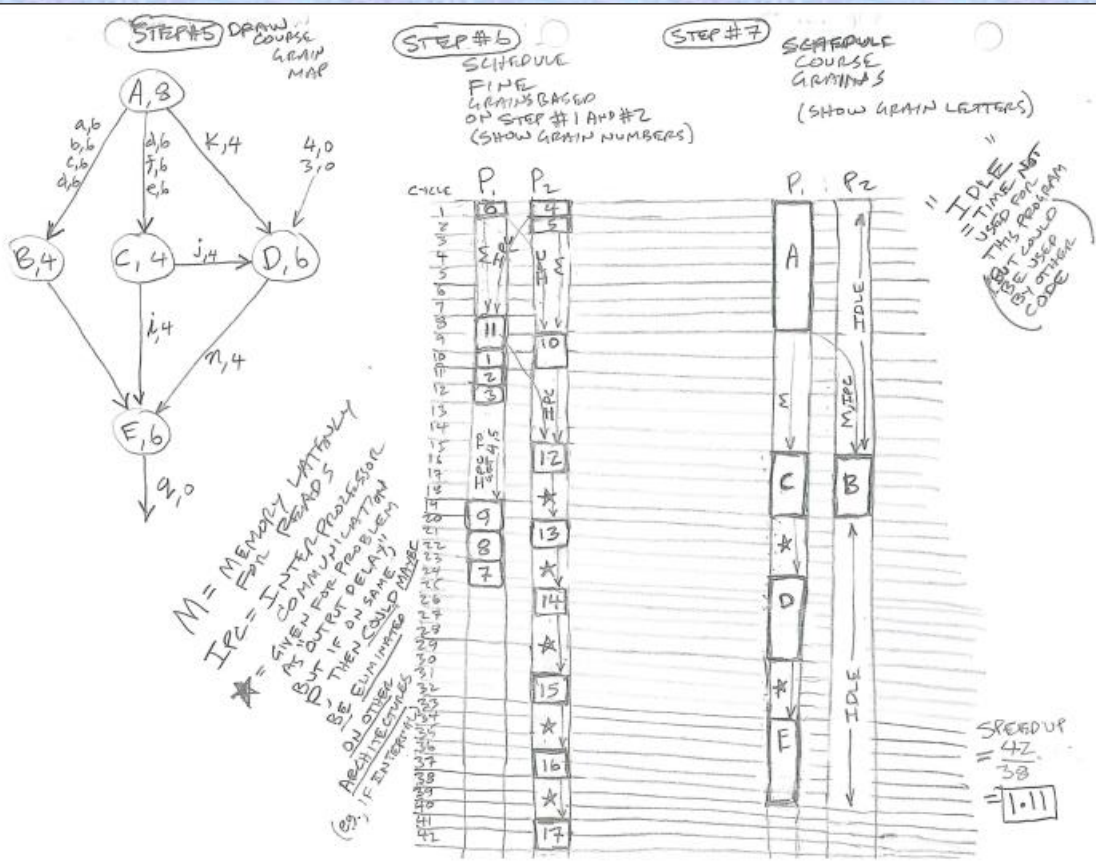 STEP #5 DRAW
COURSE
GRAIN
MAP
A,8
a,6
b,6
c,6
d,6
d,6
f,6
e,6
K,4
4,0
3,0
B,4
C,4
j,4
D,6
i,4
n,4
E,6
q,0
M = MEMORY LATENCY
FOR READS
IPC = INTERPROCESSOR
COMMUNICATION
★ = GIVEN FOR PROBLEM
AS "OUTPUT DELAY,"
BUT IF ON SAME
P, THEN COULD MAYBE
BE ELIMINATED
ON OTHER
ARCHITECTURES
(eg., IF INTERNAL)
STEP #6
SCHEDULE
FINE
GRAINS BASED
ON STEP #1 AND #2
(SHOW GRAIN NUMBERS)
CYCLE
P1 P2
1
2
3
4
5
6
7
8
9
10
11
12
13
14
15
16
17
18
19
20
21
22
23
24
25
26
27
28
29
30
31
32
33
34
35
36
37
38
39
40
41
42
6
M
IPC
11
1
2
3
IPC TO
GET 4,5
9
8
7
4
5
IPC
M
10
IPC
12
★
13
★
14
★
15
★
16
★
17
STEP #7
SCHEDULE
COURSE
GRAINS
(SHOW GRAIN LETTERS)
P1 P2
A
M
C
★
D
★
E
IDLE
M,IPC
B
IDLE
"IDLE"
= TIME NOT
USED FOR
THIS PROGRAM
(BUT COULD
BE USED
BY OTHER
CODE)
SPEEDUP
= 42
38
= 1.11